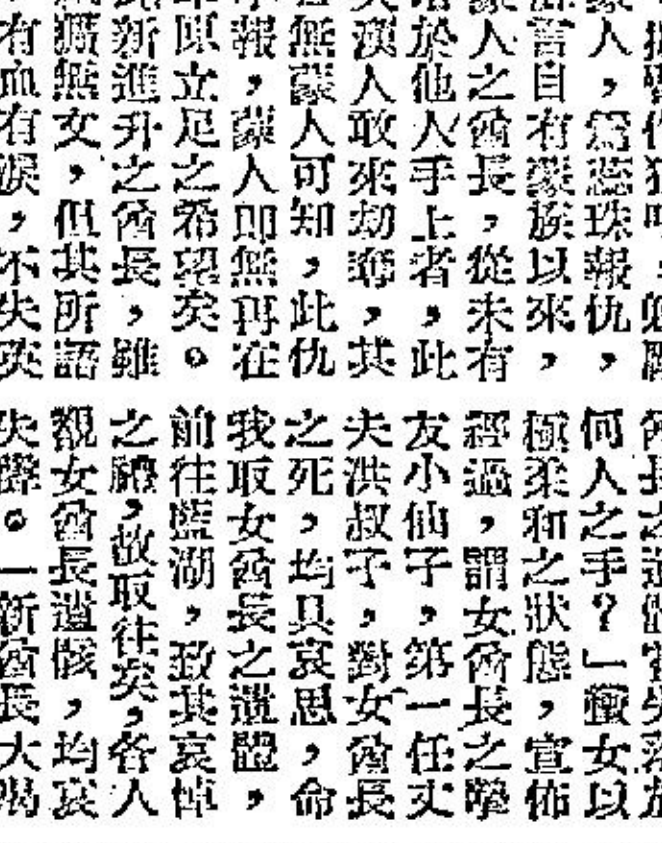 人，為蕊珠報仇，
言自有蒙族以來，
人之酋長，從未有
於他人手上者，此
漢人敢來劫奪，其
無蒙人可知，此仇
報，蒙人即無再在
原立足之希望矣。
新進升之酋長，雖
無女，但其所語
有血有淚，不失英
何人之手？」女以
極柔和之狀態，宣佈
經過，謂女酋長之摯
友小仙子，第一任丈
夫洪叔子，對女酋長
之死，均具哀思，命
我取女酋長之遺體，
前往藍湖，致其哀悼
之禮，故取往矣，各人
覩女酋長遺骸，均哀
失聲。一新酋長大喝